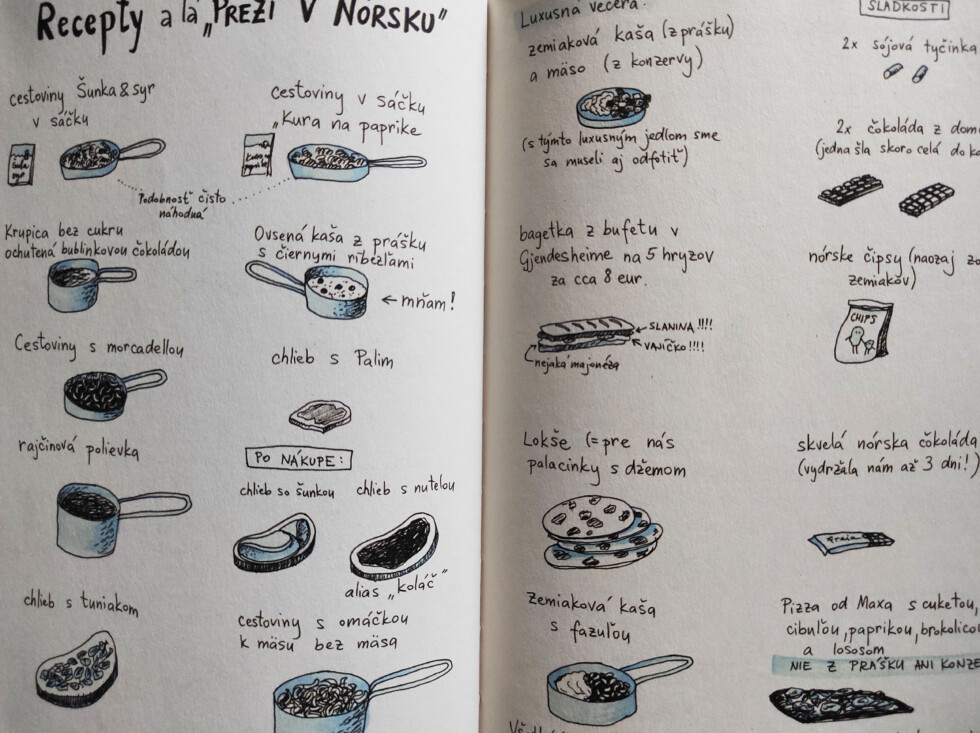 Recepty a lá „PREŽI V NÓRSKU"
cestoviny Šunka & syr
v sáčku
cestoviny v sáčku
„Kura na paprike
Podobnosť čisto
náhodná
Krupica bez cukru
ochutená bublinkovou čokoládou
Ovsená kaša z prášku
s čiernymi ríbezľami
← mňam!
Cestoviny s morcadellou
chlieb s Palim
rajčinová polievka
PO NÁKUPE:
chlieb so šunkou
chlieb s nutelou
alias „koláč"
chlieb s tuniakom
cestoviny s omáčkou
k mäsu bez mäsa
Luxusná večera:
zemiaková kaša (z prášku)
a mäso (z konzervy)
(s týmto luxusným jedlom sme
sa museli aj odfotiť)
bagetka z bufetu v
Gjendesheime na 5 hryzov
za cca 8 eur.
SLANINA !!!!
VAJÍČKO!!!!
nejaká majonéza
Lokše (= pre nás
palacinky s džemom
Zemiaková kaša
s fazuľou
SLADKOSTI
2x sójová tyčinka
2x čokoláda z dom
(jedna šla skoro celá do
nórske čipsy (naozaj zo
zemiakov)
CHIPS
skvelá nórska čokoláda
(vydržala nám až 3 dni!)
Freia
Pizza od Maxa s cuketou,
cibuľou, paprikou, brokolicou
a lososom
NIE Z PRÁŠKU ANI KONZE